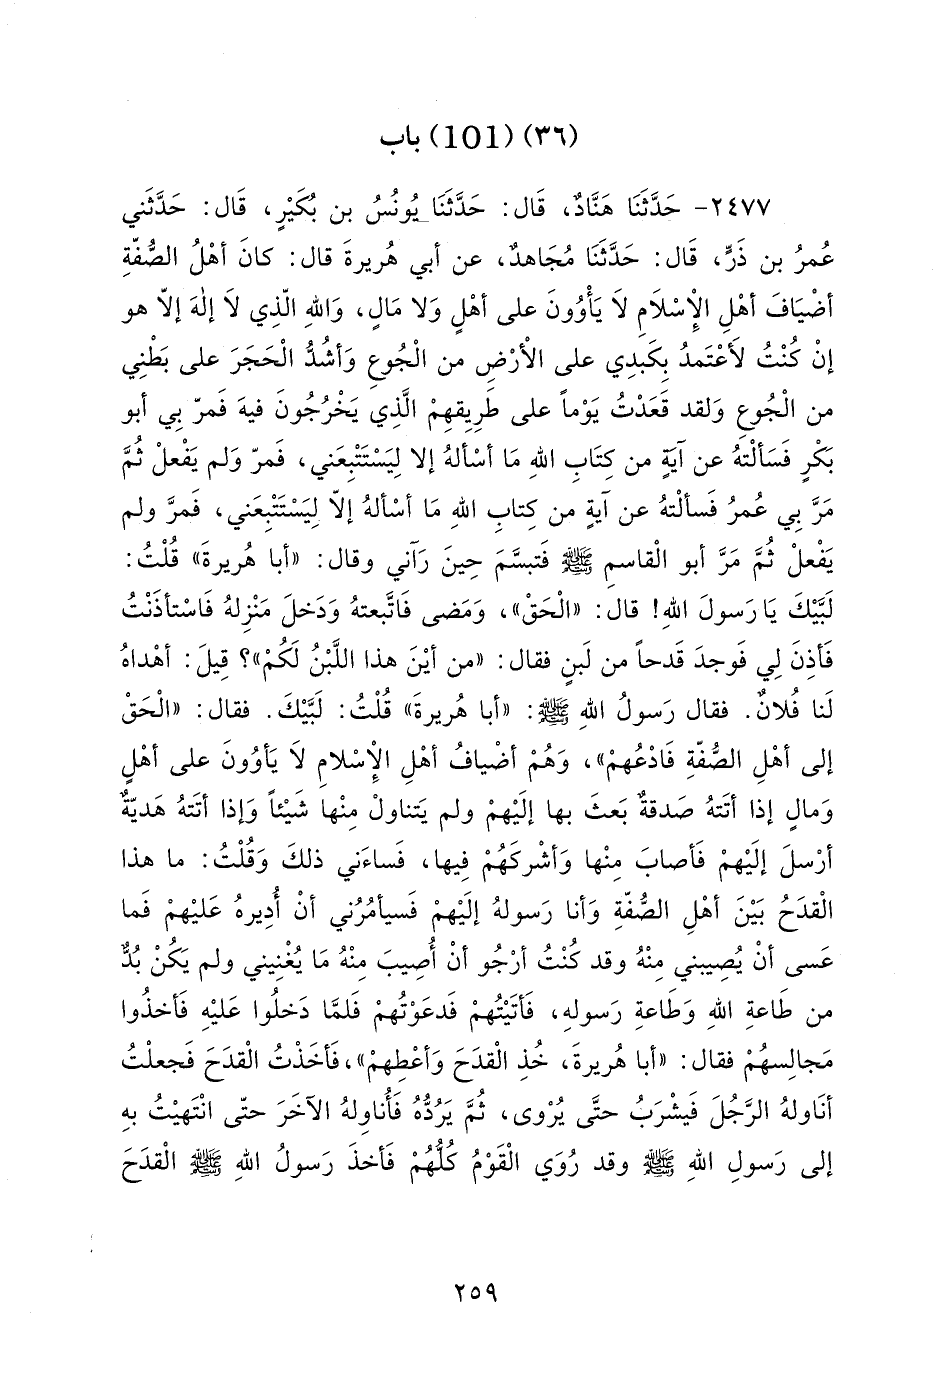 (٣٦) (101) باب
٢٤٧٧- حَدَّثَنَا هَنَّادٌ، قَال: حَدَّثَنَا يُونُسُ بن بُكَيْرٍ، قَال: حَدَّثَني
عُمرُ بن ذَرٍّ، قَال: حَدَّثَنَا مُجَاهدٌ، عن أبي هُريرةَ قال: كانَ أهْلُ الصُّفّةِ
أضْيَافَ أهْلِ الإسْلَامِ لَا يَأْوُونَ على أهْلٍ وَلا مَالٍ، وَاللهِ الّذِي لَا إلهَ إلاّ هو
إنْ كُنْتُ لأعْتَمدُ بِكَبدِي على الأرْضِ من الْجُوعِ وَأشُدُّ الْحَجَرَ على بَطْنِي
من الْجُوعِ وَلقد قَعَدْتُ يَوْماً على طَرِيقِهِمْ الَّذِي يَخْرُجُونَ فيهَ فَمرّ بِي أبو
بَكْرٍ فَسَألْتهُ عن آيَةٍ من كِتَابِ اللهِ مَا أسْألهُ إلا لِيَسْتَتْبِعَني، فَمرّ وَلم يَفْعلْ ثُمَّ
مَرَّ بِي عُمرُ فَسألْتهُ عن آيةٍ من كِتابِ اللهِ مَا أسْألهُ إلاّ لِيَسْتَتْبِعَني، فَمرَّ ولم
يَفْعلْ ثُمَّ مَرَّ أبو الْقاسمِ ﷺ فَتبسَّمَ حِينَ رَآني وقال: «أبا هُريرةَ» قُلْتُ:
لَبَّيْكَ يَا رَسولَ اللهِ! قال: «الْحَقْ»، وَمَضى فَاتَّبعتهُ وَدَخلَ مَنْزِلهُ فَاسْتأذَنْتُ
فَأذِنَ لِي فَوجدَ قَدحاً من لَبنٍ فقال: «من أيْنَ هذا اللَّبْنُ لَكُمْ»؟ قِيلَ: أهْداهُ
لَنا فُلانٌ. فقال رَسولُ اللهِ ﷺ: «أبا هُريرةَ» قُلْتُ: لَبَّيْكَ. فقال: «الْحَقْ
إلى أهْلِ الصُّفّةِ فَادْعُهمْ»، وَهُمْ أضْيافُ أهْلِ الإسْلامِ لَا يَأوُونَ على أهْلٍ
وَمالٍ إذا أتَتهُ صَدقةٌ بَعثَ بها إلَيْهِمْ ولم يَتناولْ مِنْها شَيْئاً وَإذا أتَتهُ هَديّةٌ
أرْسلَ إلَيْهِمْ فَأصابَ مِنْها وَأشْركَهُمْ فِيها، فَساءَني ذلكَ وَقُلْتُ: ما هذا
الْقدَحُ بَيْنَ أهْلِ الصُّفّةِ وَأنا رَسولهُ إلَيْهِمْ فَسيأمُرُني أنْ أُدِيرهُ عَليْهِمْ فَما
عَسى أنْ يُصِيبني مِنْهُ وقد كُنْتُ أرْجُو أنْ أُصِيبَ مِنْهُ مَا يُغْنِيني ولم يَكُنْ بُدٌّ
من طَاعةِ اللهِ وَطَاعةِ رَسولهِ، فَأتَيْتُهمْ فَدعَوْتُهمْ فَلمَّا دَخلُوا عَليْهِ فَأخذُوا
مَجالِسهُمْ فقال: «أبا هُريرةَ، خُذِ الْقدَحَ وَأعْطِهمْ»، فَأخَذْتُ الْقدَحَ فَجعلْتُ
أنَاولهُ الرَّجُلَ فَيشْربُ حتَّى يُرْوى، ثُمَّ يَرُدُّهُ فَأُناولهُ الآخَرَ حتّى انْتَهيْتُ بهِ
إلى رَسولِ اللهِ ﷺ وقد رُوَي الْقَوْمُ كُلُّهُمْ فَأخذَ رَسولُ اللهِ ﷺ الْقدَحَ
٢٥٩